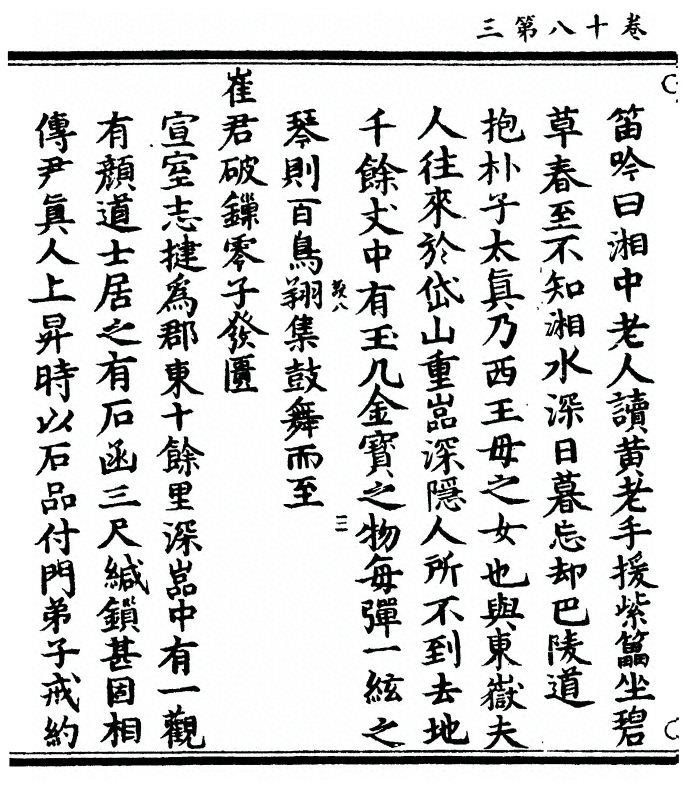 卷十八第三
笛吟曰湘中老人讀黄老手援紫藟坐碧
草春至不知湘水深日暮忘却巴陵道
抱朴子太眞乃西王母之女也與東嶽夫
人往來於岱山重嵓深隱人所不到去地
千餘丈中有玉几金寶之物每彈一絃之
琴則百鳥翔集鼓舞而至
三
崔君破鏁零子發匱
宣室志揵爲郡東十餘里深嵓中有一觀
有顔道士居之有石函三尺緘鎖甚固相
傳尹眞人上昇時以石品付門弟子戒約